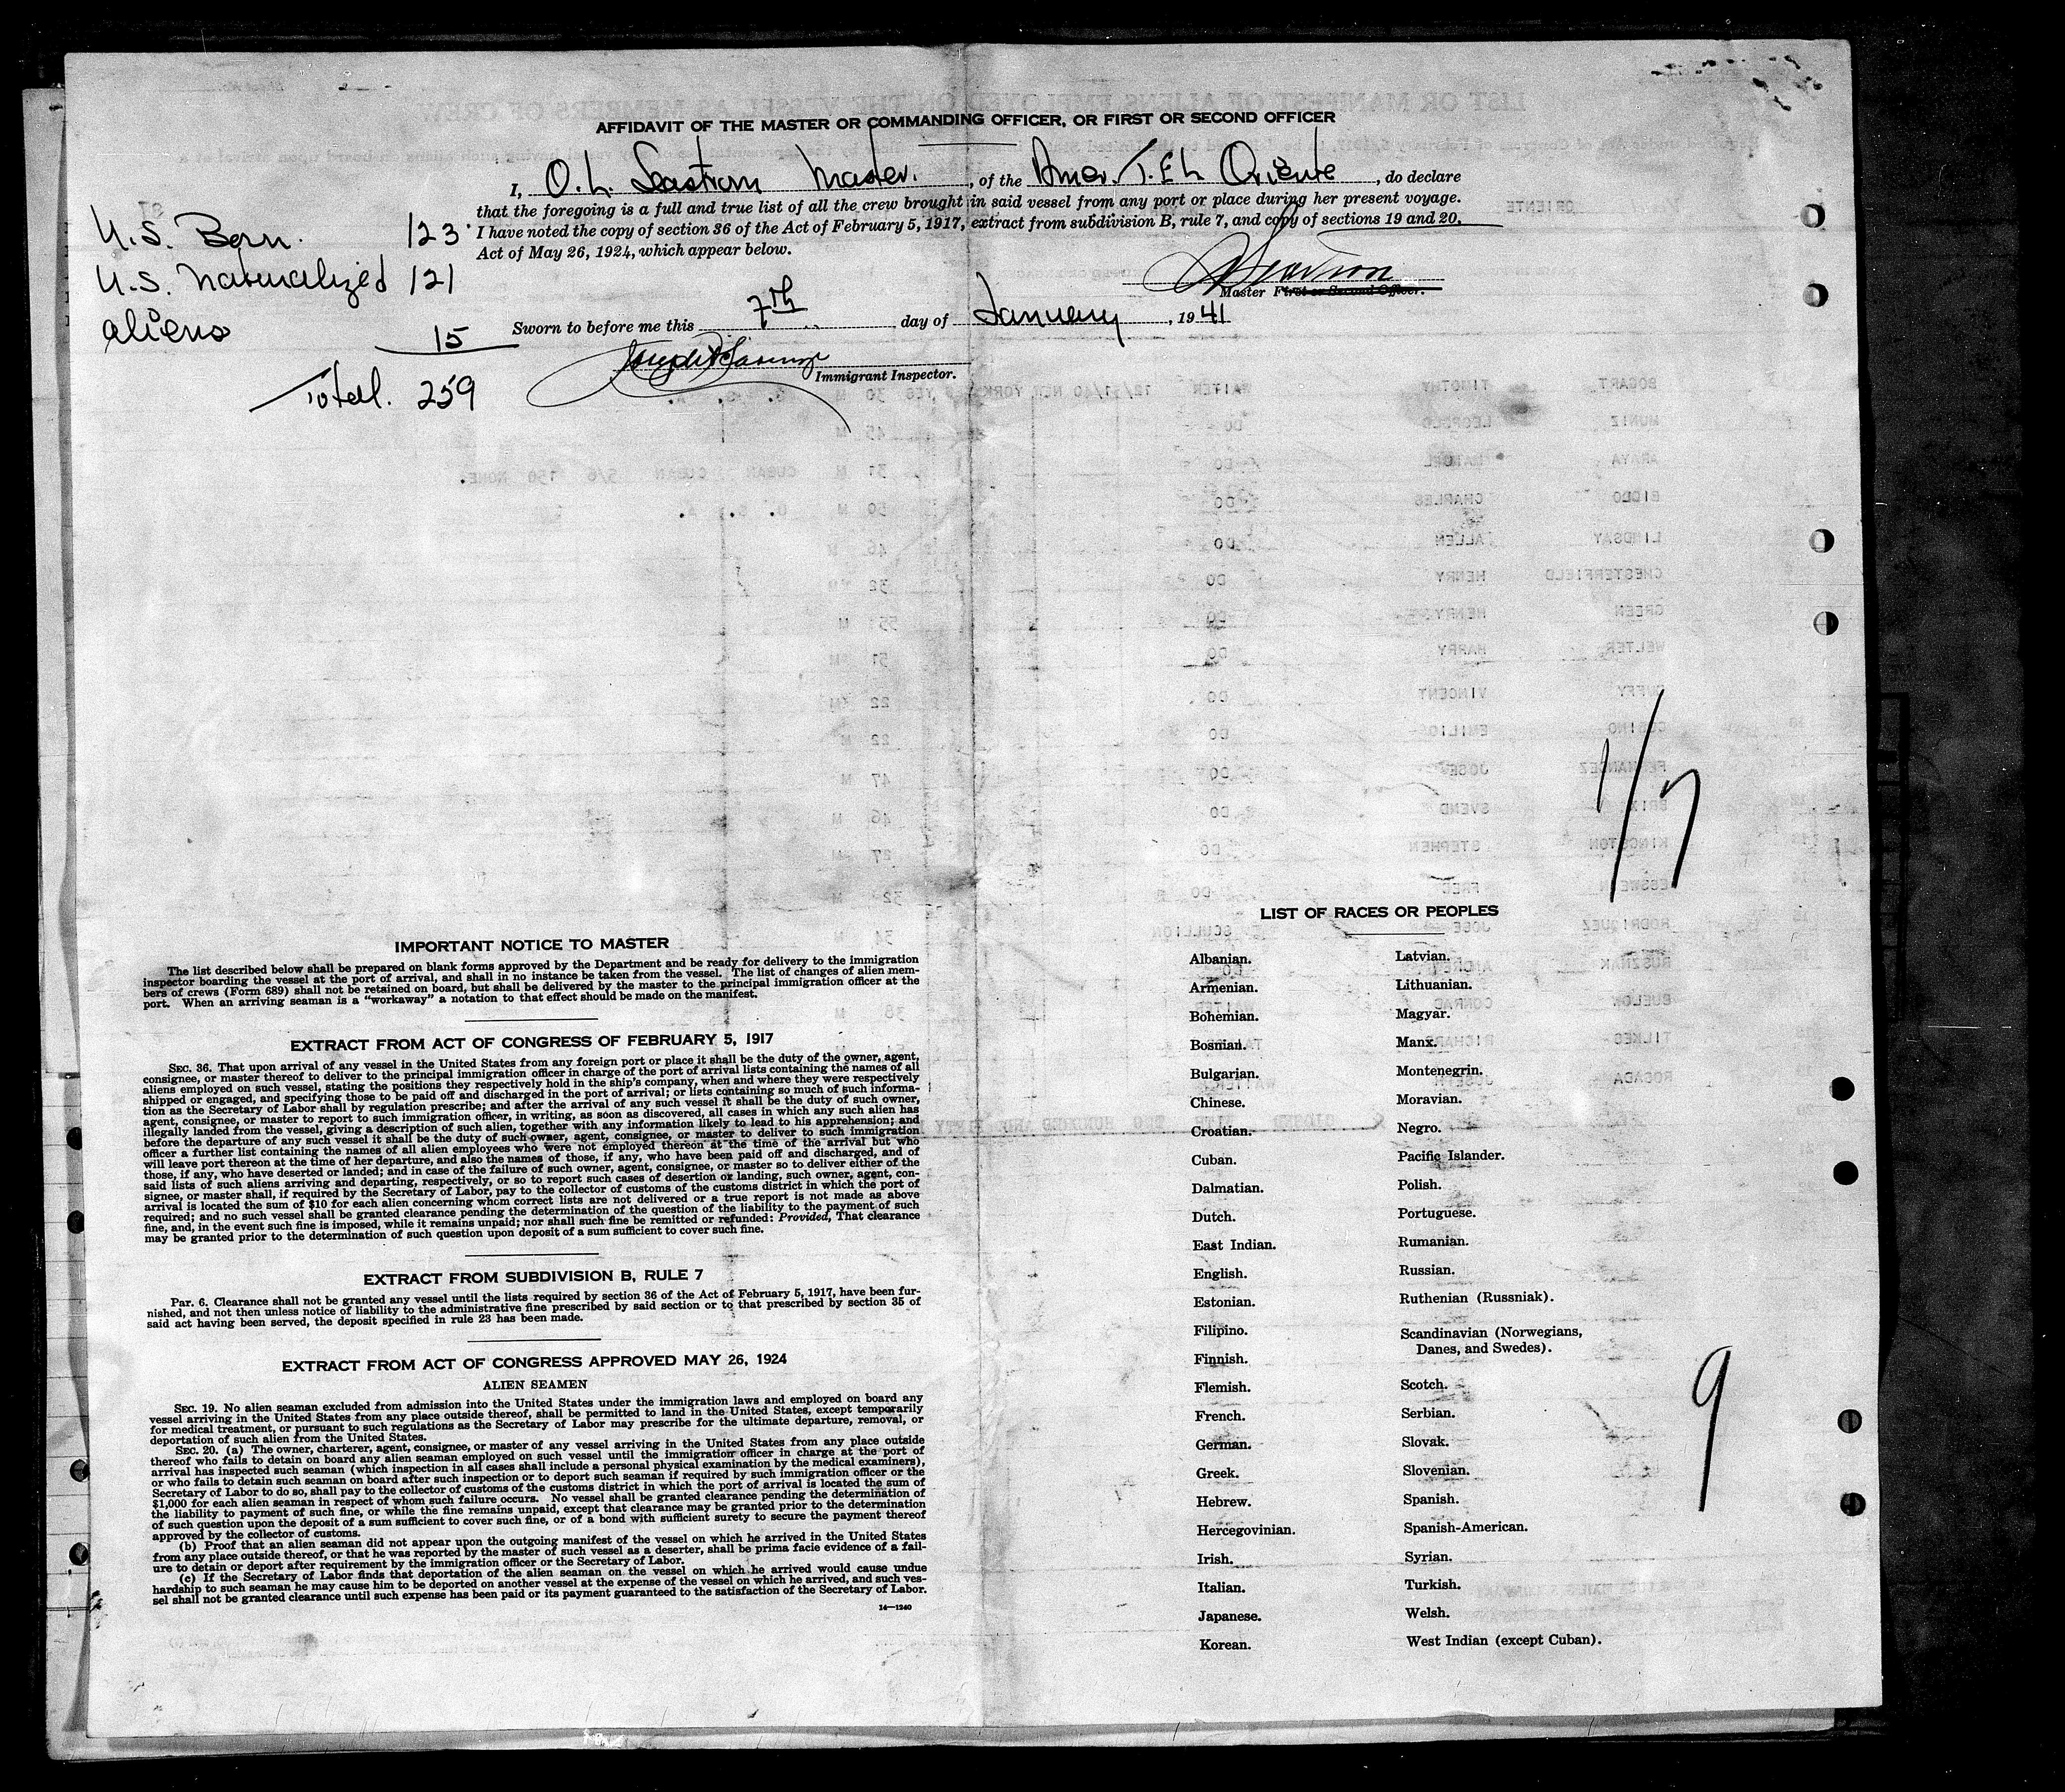 AFFIDAVIT OF THE MASTER OR COMMANDING OFFICER, OR FIRST OR SECOND OFFICER
I, O. L. Seastrom Master. , of the Amer. T.EL Oriente , do declare
that the foregoing is a full and true list of all the crew brought in said vessel from any port or place during her present voyage.
I have noted the copy of section 36 of the Act of February 5, 1917, extract from subdivision B, rule 7, and copy of sections 19 and 20,
Act of May 26, 1924, which appear below.
Master First or Second Officer.
Sworn to before me this 7th day of January , 19 41
Immigrant Inspector.
U.S. Born. 123
U.S. Naturalized 121
Aliens 15
Total. 259
1/7
IMPORTANT NOTICE TO MASTER
The list described below shall be prepared on blank forms approved by the Department and be ready for delivery to the immigration
inspector boarding the vessel at the port of arrival, and shall in no instance be taken from the vessel. The list of changes of alien mem-
bers of crews (Form 689) shall not be retained on board, but shall be delivered by the master to the principal immigration officer at the
port. When an arriving seaman is a "workaway" a notation to that effect should be made on the manifest.
EXTRACT FROM ACT OF CONGRESS OF FEBRUARY 5, 1917
SEC. 36. That upon arrival of any vessel in the United States from any foreign port or place it shall be the duty of the owner, agent,
consignee, or master thereof to deliver to the principal immigration officer in charge of the port of arrival lists containing the names of all
aliens employed on such vessel, stating the positions they respectively hold in the ship's company, when and where they were respectively
shipped or engaged, and specifying those to be paid off and discharged in the port of arrival; or lists containing so much of such informa-
tion as the Secretary of Labor shall by regulation prescribe; and after the arrival of any such vessel it shall be the duty of such owner,
agent, consignee, or master to report to such immigration officer, in writing, as soon as discovered, all cases in which any such alien has
illegally landed from the vessel, giving a description of such alien, together with any information likely to lead to his apprehension; and
before the departure of any such vessel it shall be the duty of such owner, agent, consignee, or master to deliver to such immigration
officer a further list containing the names of all alien employees who were not employed thereon at the time of the arrival but who
will leave port thereon at the time of her departure, and also the names of those, if any, who have been paid off and discharged, and of
those, if any, who have deserted or landed; and in case of the failure of such owner, agent, consignee, or master so to deliver either of the
said lists of such aliens arriving and departing, respectively, or so to report such cases of desertion or landing, such owner, agent, con-
signee, or master shall, if required by the Secretary of Labor, pay to the collector of customs of the customs district in which the port of
arrival is located the sum of $10 for each alien concerning whom correct lists are not delivered or a true report is not made as above
required; and no such vessel shall be granted clearance pending the determination of the question of the liability to the payment of such
fine, and, in the event such fine is imposed, while it remains unpaid; nor shall such fine be remitted or refunded: Provided, That clearance
may be granted prior to the determination of such question upon deposit of a sum sufficient to cover such fine.
EXTRACT FROM SUBDIVISION B, RULE 7
PAR. 6. Clearance shall not be granted any vessel until the lists required by section 36 of the Act of February 5, 1917, have been fur-
nished, and not then unless notice of liability to the administrative fine prescribed by said section or to that prescribed by section 35 of
said act having been served, the deposit specified in rule 23 has been made.
EXTRACT FROM ACT OF CONGRESS APPROVED MAY 26, 1924
ALIEN SEAMEN
SEC. 19. No alien seaman excluded from admission into the United States under the immigration laws and employed on board any
vessel arriving in the United States from any place outside thereof, shall be permitted to land in the United States, except temporarily
for medical treatment, or pursuant to such regulations as the Secretary of Labor may prescribe for the ultimate departure, removal, or
deportation of such alien from the United States.
SEC. 20. (a) The owner, charterer, agent, consignee, or master of any vessel arriving in the United States from any place outside
thereof who fails to detain on board any alien seaman employed on such vessel until the immigration officer in charge at the port of
arrival has inspected such seaman (which inspection in all cases shall include a personal physical examination by the medical examiners),
or who fails to detain such seaman on board after such inspection or to deport such seaman if required by such immigration officer or the
Secretary of Labor to do so, shall pay to the collector of customs of the customs district in which the port of arrival is located the sum of
$1,000 for each alien seaman in respect of whom such failure occurs. No vessel shall be granted clearance pending the determination of
the liability to payment of such fine, or while the fine remains unpaid, except that clearance may be granted prior to the determination
of such question upon the deposit of a sum sufficient to cover such fine, or of a bond with sufficient surety to secure the payment thereof
approved by the collector of customs.
(b) Proof that an alien seaman did not appear upon the outgoing manifest of the vessel on which he arrived in the United States
from any place outside thereof, or that he was reported by the master of such vessel as a deserter, shall be prima facie evidence of a fail-
ure to detain or deport after requirement by the immigration officer or the Secretary of Labor.
(c) If the Secretary of Labor finds that deportation of the alien seaman on the vessel on which he arrived would cause undue
hardship to such seaman he may cause him to be deported on another vessel at the expense of the vessel on which he arrived, and such ves-
sel shall not be granted clearance until such expense has been paid or its payment guaranteed to the satisfaction of the Secretary of Labor.
14—1240
LIST OF RACES OR PEOPLES
Albanian.
Armenian.
Bohemian.
Bosnian.
Bulgarian.
Chinese.
Croatian.
Cuban.
Dalmatian.
Dutch.
East Indian.
English.
Estonian.
Filipino.
Finnish.
Flemish.
French.
German.
Greek.
Hebrew.
Hercegovinian.
Irish.
Italian.
Japanese.
Korean.
Latvian.
Lithuanian.
Magyar.
Manx.
Montenegrin.
Moravian.
Negro.
Pacific Islander.
Polish.
Portuguese.
Rumanian.
Russian.
Ruthenian (Russniak).
Scandinavian (Norwegians,
Danes, and Swedes).
Scotch.
Serbian.
Slovak.
Slovenian.
Spanish.
Spanish-American.
Syrian.
Turkish.
Welsh.
West Indian (except Cuban).
9